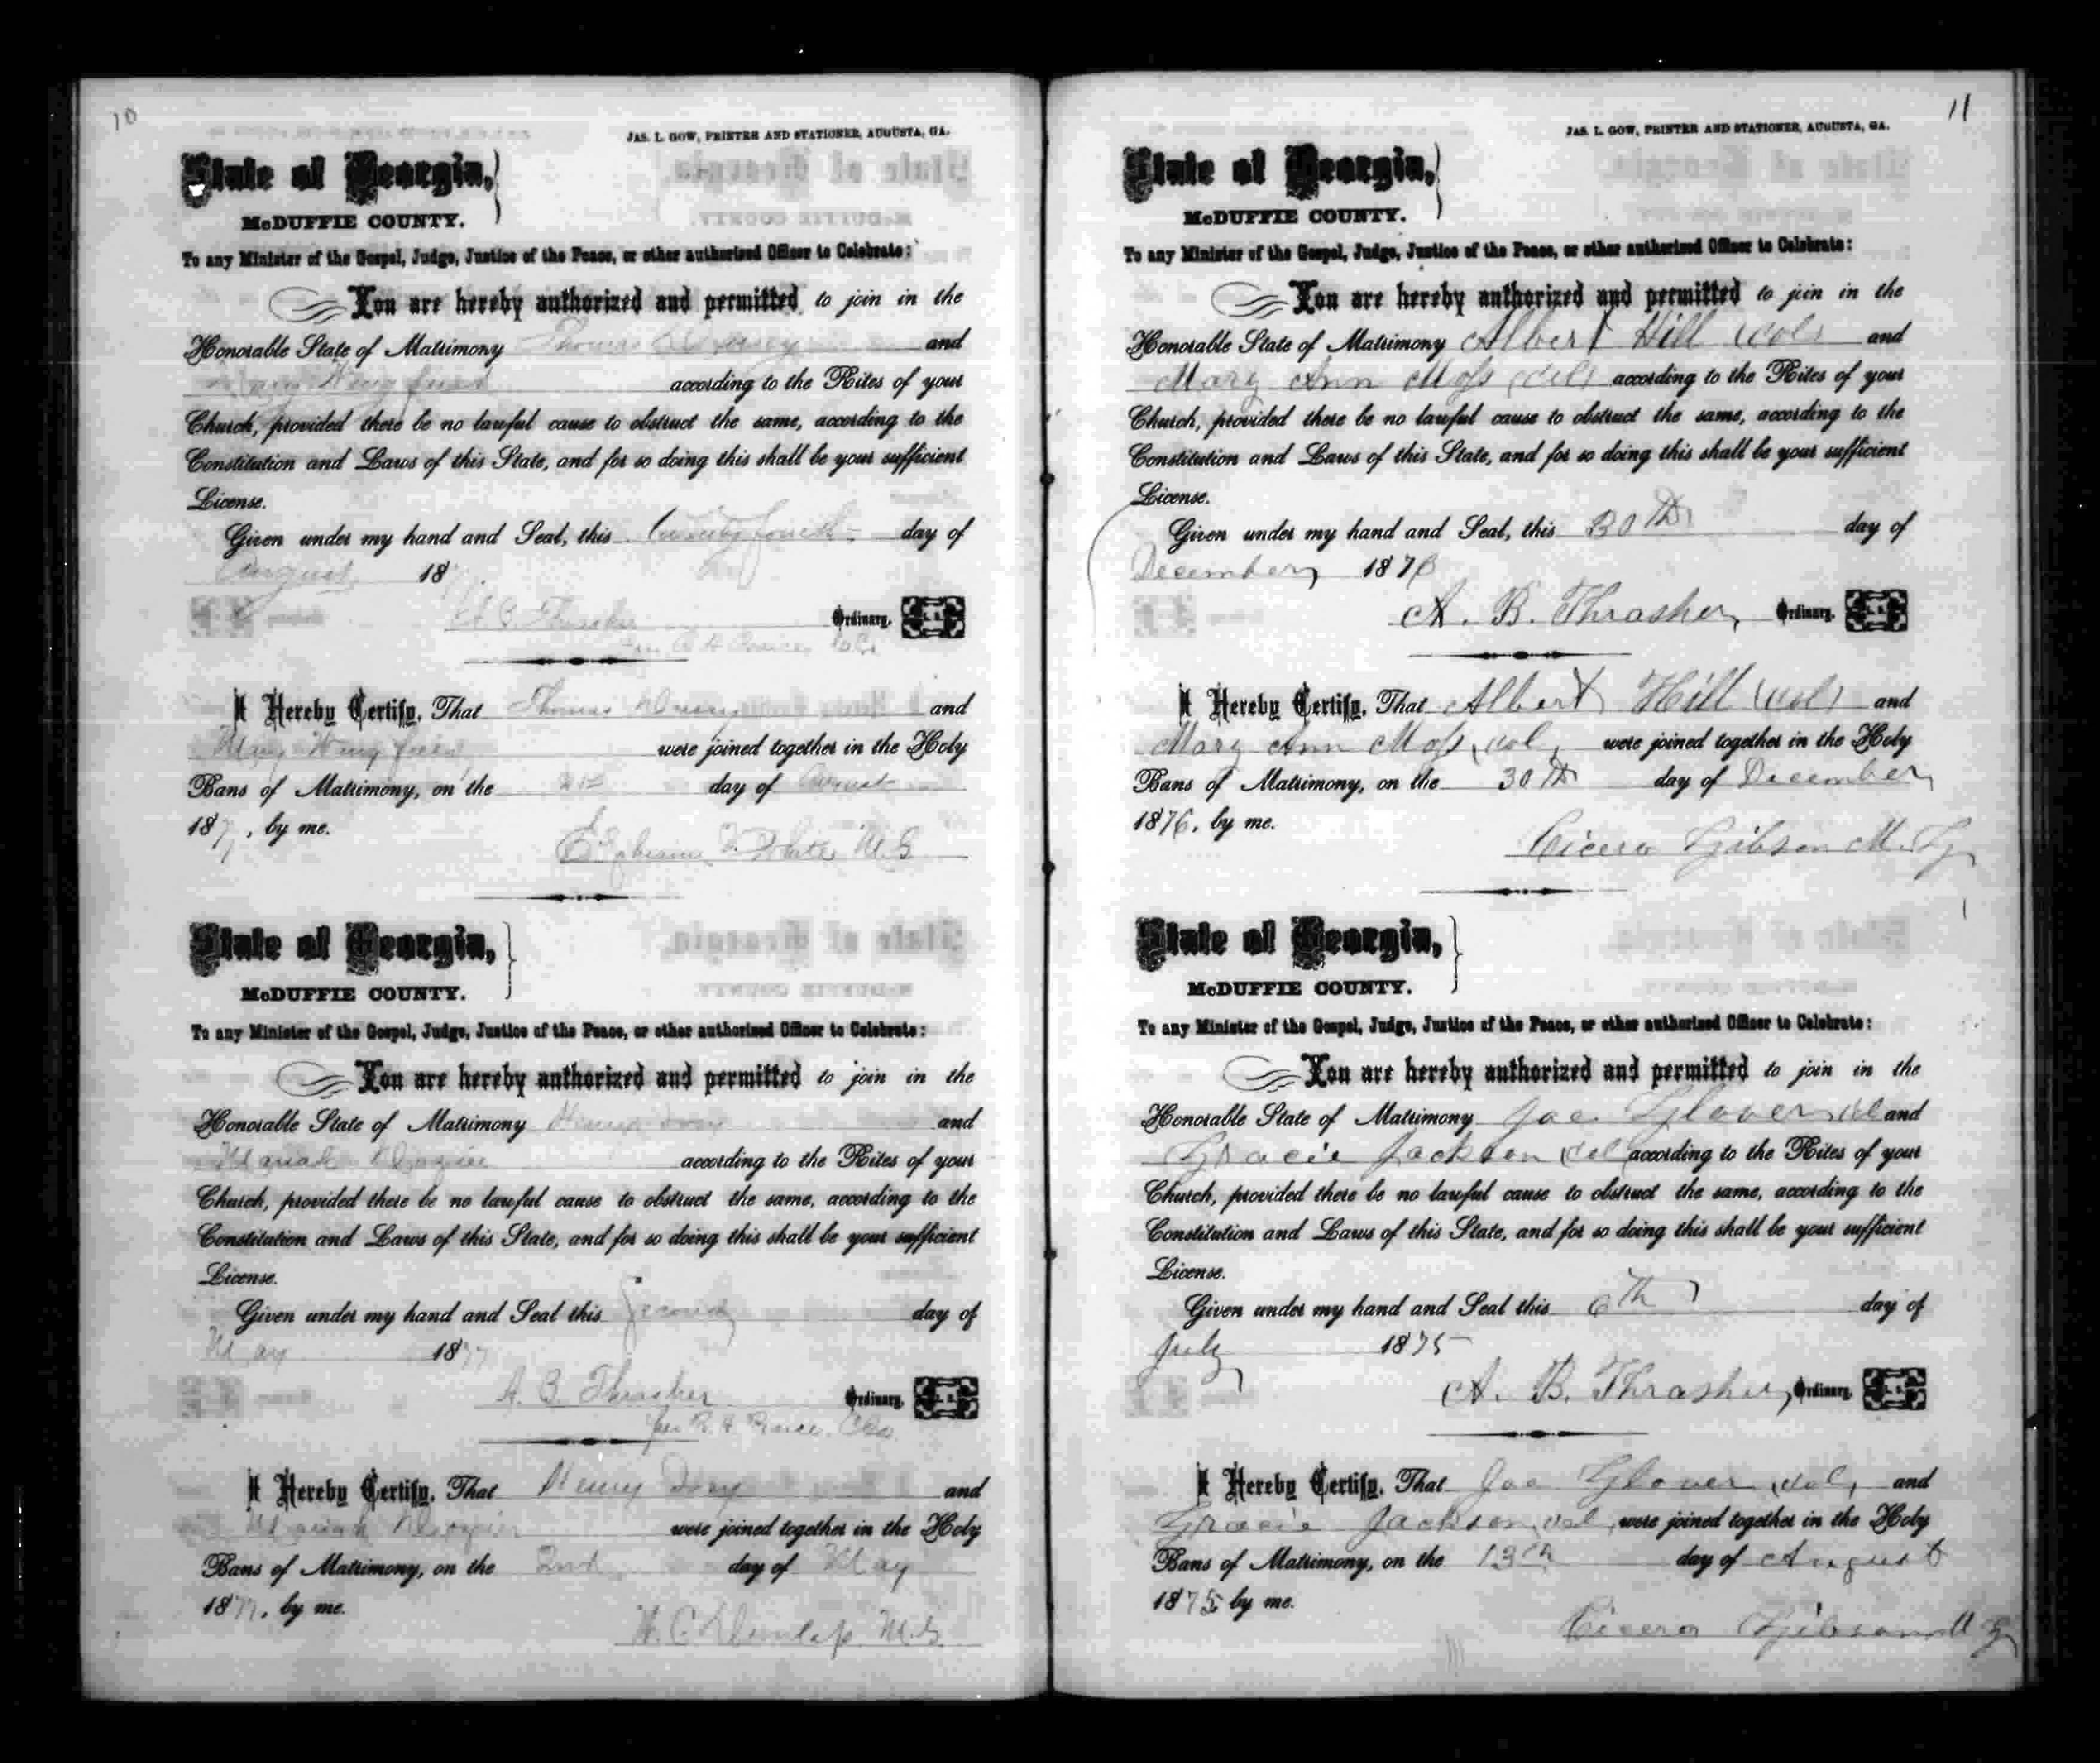 10
JAS. L. GOW, PRINTER AND STATIONER, AUGUSTA, GA.
State of Georgia,
McDUFFIE COUNTY.
To any Minister of the Gospel, Judge, Justice of the Peace, or other authorized Officer to Celebrate:
You are hereby authorized and permitted to join in the
Honorable State of Matrimony Thomas and
Mary according to the Rites of your
Church, provided there be no lawful cause to obstruct the same, according to the
Constitution and Laws of this State, and for so doing this shall be your sufficient
License.
Given under my hand and Seal, this twenty fourth day of
August 18
A B Thrasher Ordinary. L. S.
I Hereby Certify, That Thomas and
Mary were joined together in the Holy
Bans of Matrimony, on the day of August
187 , by me.
White M.G.
State of Georgia,
McDUFFIE COUNTY.
To any Minister of the Gospel, Judge, Justice of the Peace, or other authorized Officer to Celebrate:
You are hereby authorized and permitted to join in the
Honorable State of Matrimony Henry Ivey and
Mariah Dozier according to the Rites of your
Church, provided there be no lawful cause to obstruct the same, according to the
Constitution and Laws of this State, and for so doing this shall be your sufficient
License.
Given under my hand and Seal this Second day of
May 1877
A. B. Thrasher Ordinary. L. S.
per R. H. Pearce
I Hereby Certify, That Henry Ivey and
Mariah Dozier were joined together in the Holy
Bans of Matrimony, on the 2nd day of May
1877, by me.
W. C. Dunlap M.G.
11
JAS. L. GOW, PRINTER AND STATIONER, AUGUSTA, GA.
State of Georgia,
McDUFFIE COUNTY.
To any Minister of the Gospel, Judge, Justice of the Peace, or other authorized Officer to Celebrate:
You are hereby authorized and permitted to join in the
Honorable State of Matrimony Albert Hill (col) and
Mary Ann Moss (col) according to the Rites of your
Church, provided there be no lawful cause to obstruct the same, according to the
Constitution and Laws of this State, and for so doing this shall be your sufficient
License.
Given under my hand and Seal, this 30th day of
December 1876
A. B. Thrasher, Ordinary. L. S.
I Hereby Certify, That Albert Hill (col) and
Mary Ann Moss, col, were joined together in the Holy
Bans of Matrimony, on the 30th day of December
1876, by me.
Cicero Gibson M. G.
State of Georgia,
McDUFFIE COUNTY.
To any Minister of the Gospel, Judge, Justice of the Peace, or other authorized Officer to Celebrate:
You are hereby authorized and permitted to join in the
Honorable State of Matrimony Joe Glover col and
Gracie Jackson (col) according to the Rites of your
Church, provided there be no lawful cause to obstruct the same, according to the
Constitution and Laws of this State, and for so doing this shall be your sufficient
License.
Given under my hand and Seal this 6th day of
July 1875
A. B. Thrasher, Ordinary. L. S.
I Hereby Certify, That Joe Glover, col, and
Gracie Jackson, col, were joined together in the Holy
Bans of Matrimony, on the 13th day of August
1875 by me.
Cicero Gibson M G